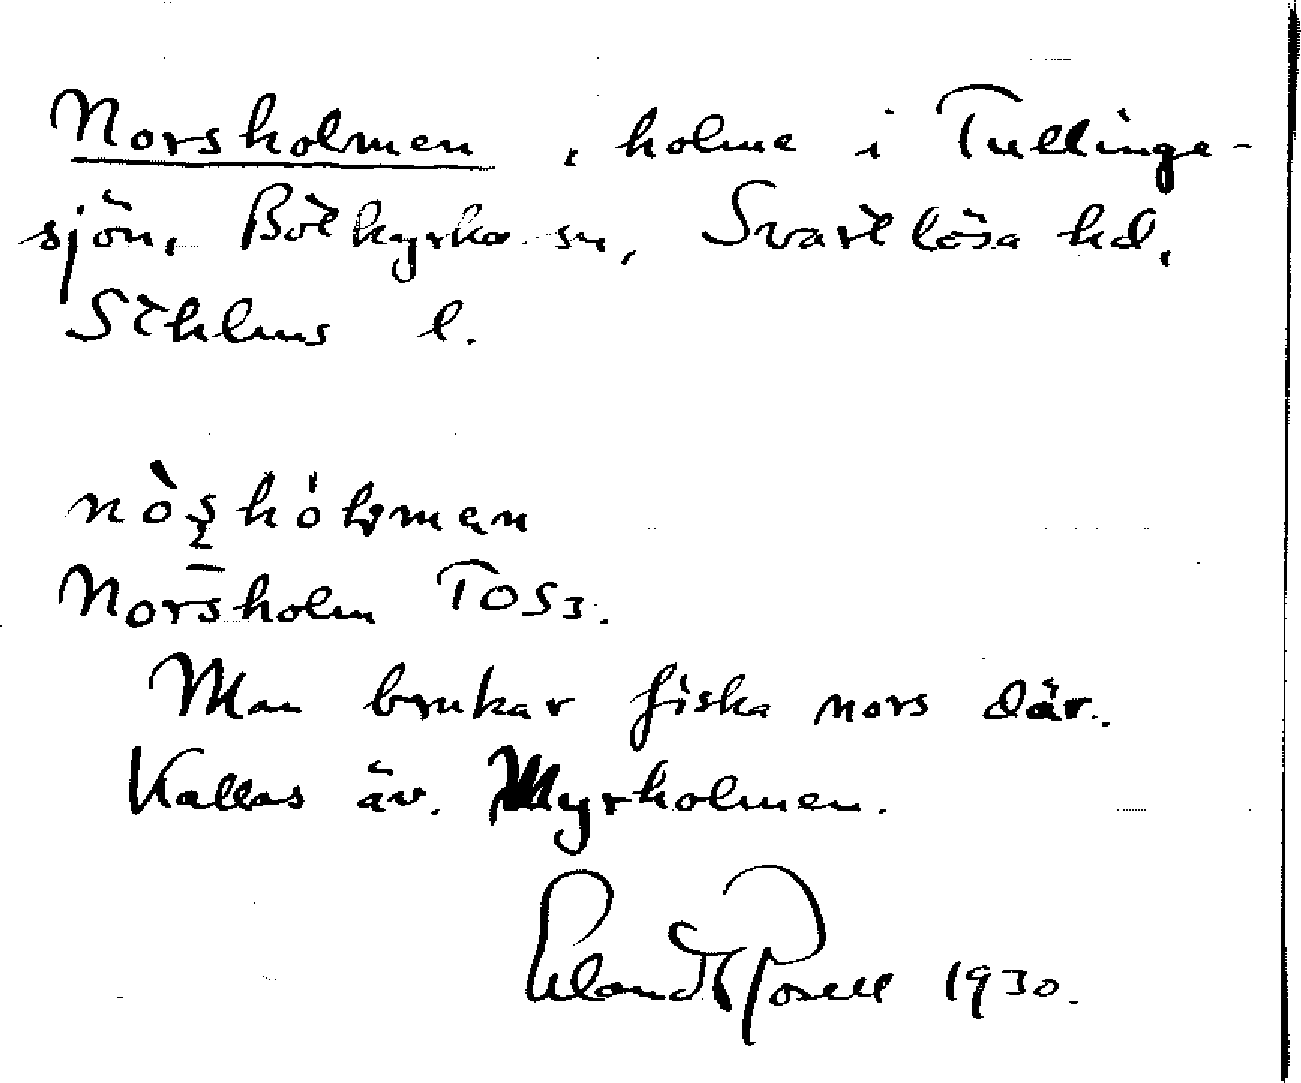 Norsholmen, holme i Tullinge-
sjön, Botkyrka sn, Svartlösa hd,
Sthlms l.
Norsholm TOS3.
Man brukar fiska nors där.
Kallas äv. Myrholmen.
Erland Rosell 1930.